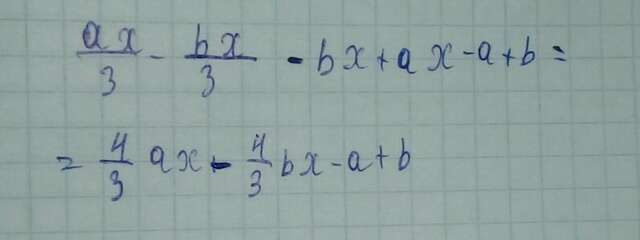 ax/3 - bx/3 - bx + ax - a + b =
= 4/3 ax - 4/3 bx - a + b